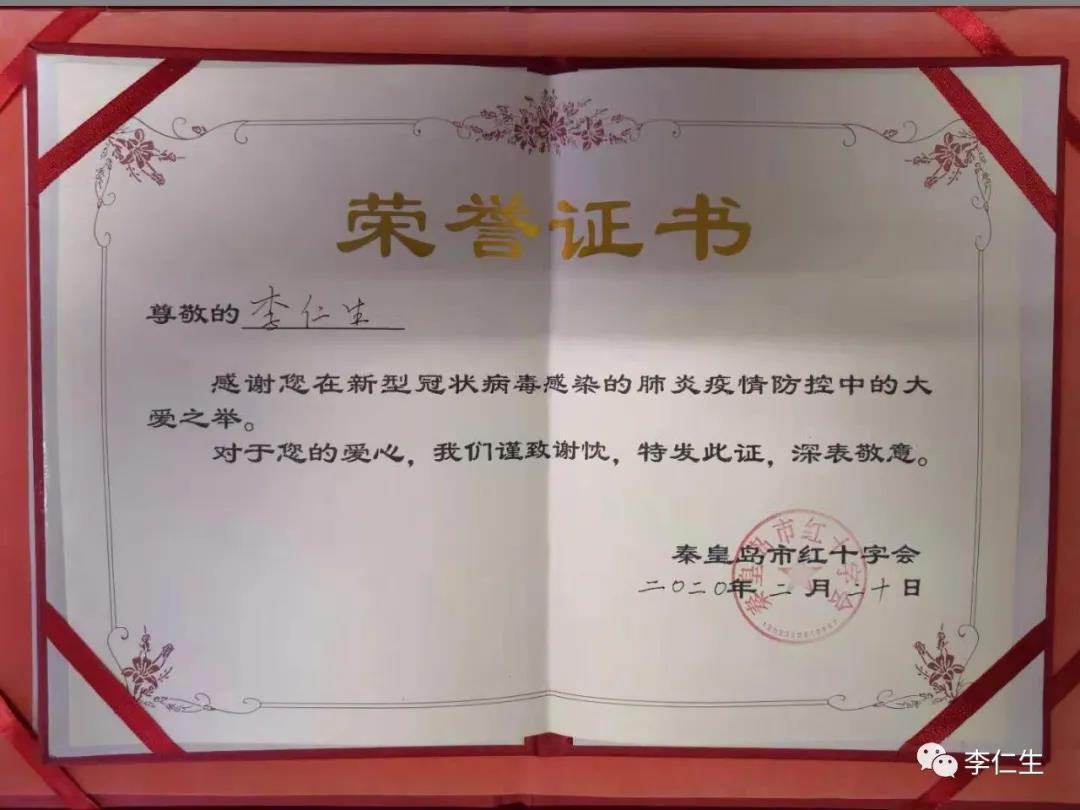 荣誉证书
尊敬的李仁生
感谢您在新型冠状病毒感染的肺炎疫情防控中的大
爱之举。
对于您的爱心，我们谨致谢忱，特发此证，深表敬意。
秦皇岛市红十字会
二〇二〇年二月二十日
秦皇岛市红十字会
李仁生